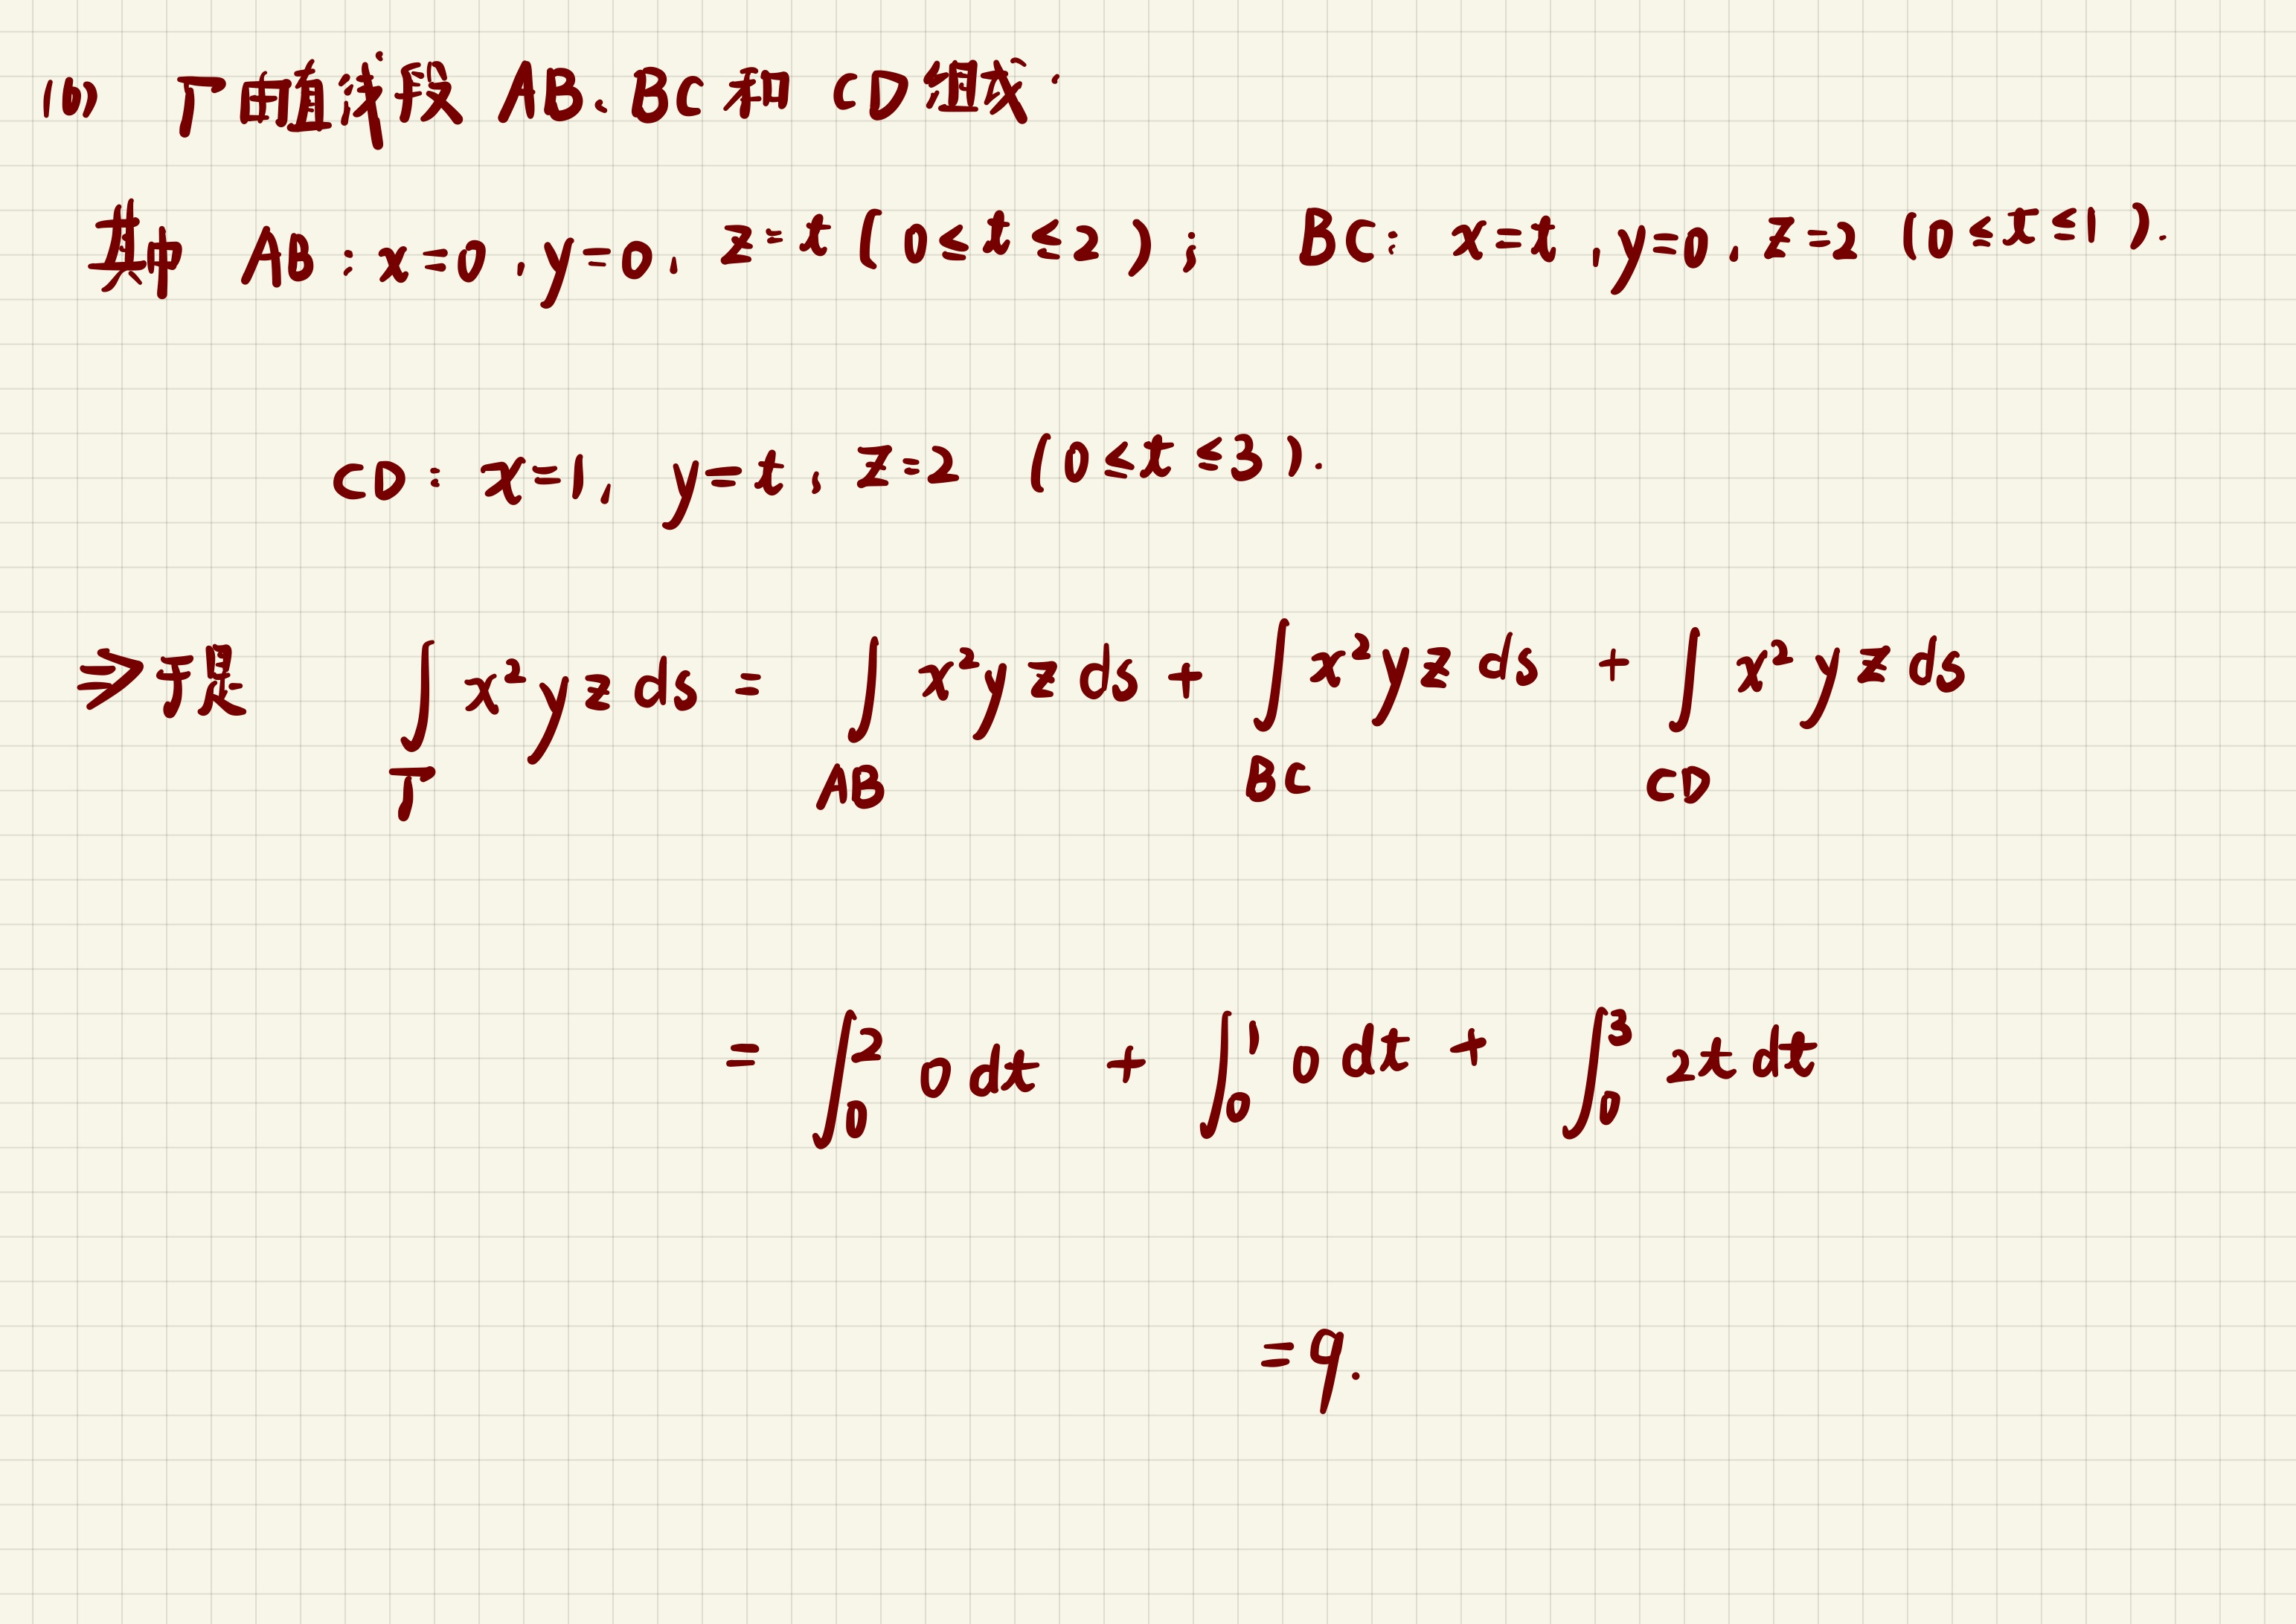 (6) Γ由直线段 AB、BC 和 CD 组成.
其中 AB: x=0, y=0, z=t (0≤t≤2); BC: x=t, y=0, z=2 (0≤t≤1).
CD: x=1, y=t, z=2 (0≤t≤3).
⇒ 于是 ∫_Γ x²yz ds = ∫_AB x²yz ds + ∫_BC x²yz ds + ∫_CD x²yz ds
= ∫₀² 0 dt + ∫₀¹ 0 dt + ∫₀³ 2t dt
= 9.